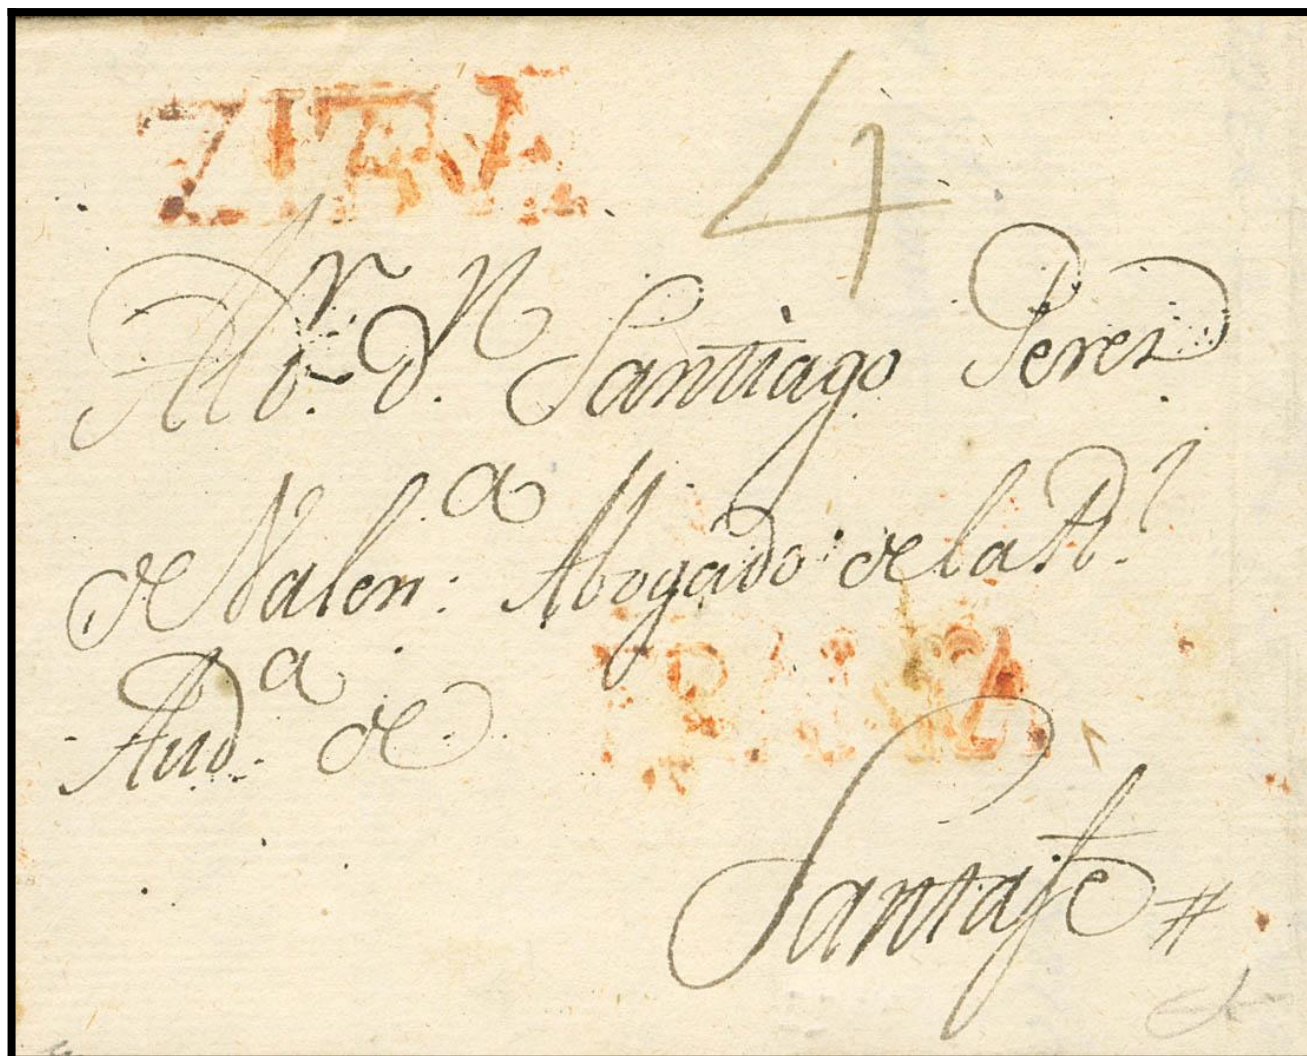 ZITA 4
A Dr. Dn. Santiago Perez
de Valen:a Abogado de la Rl.
Auda. de
Santafe #